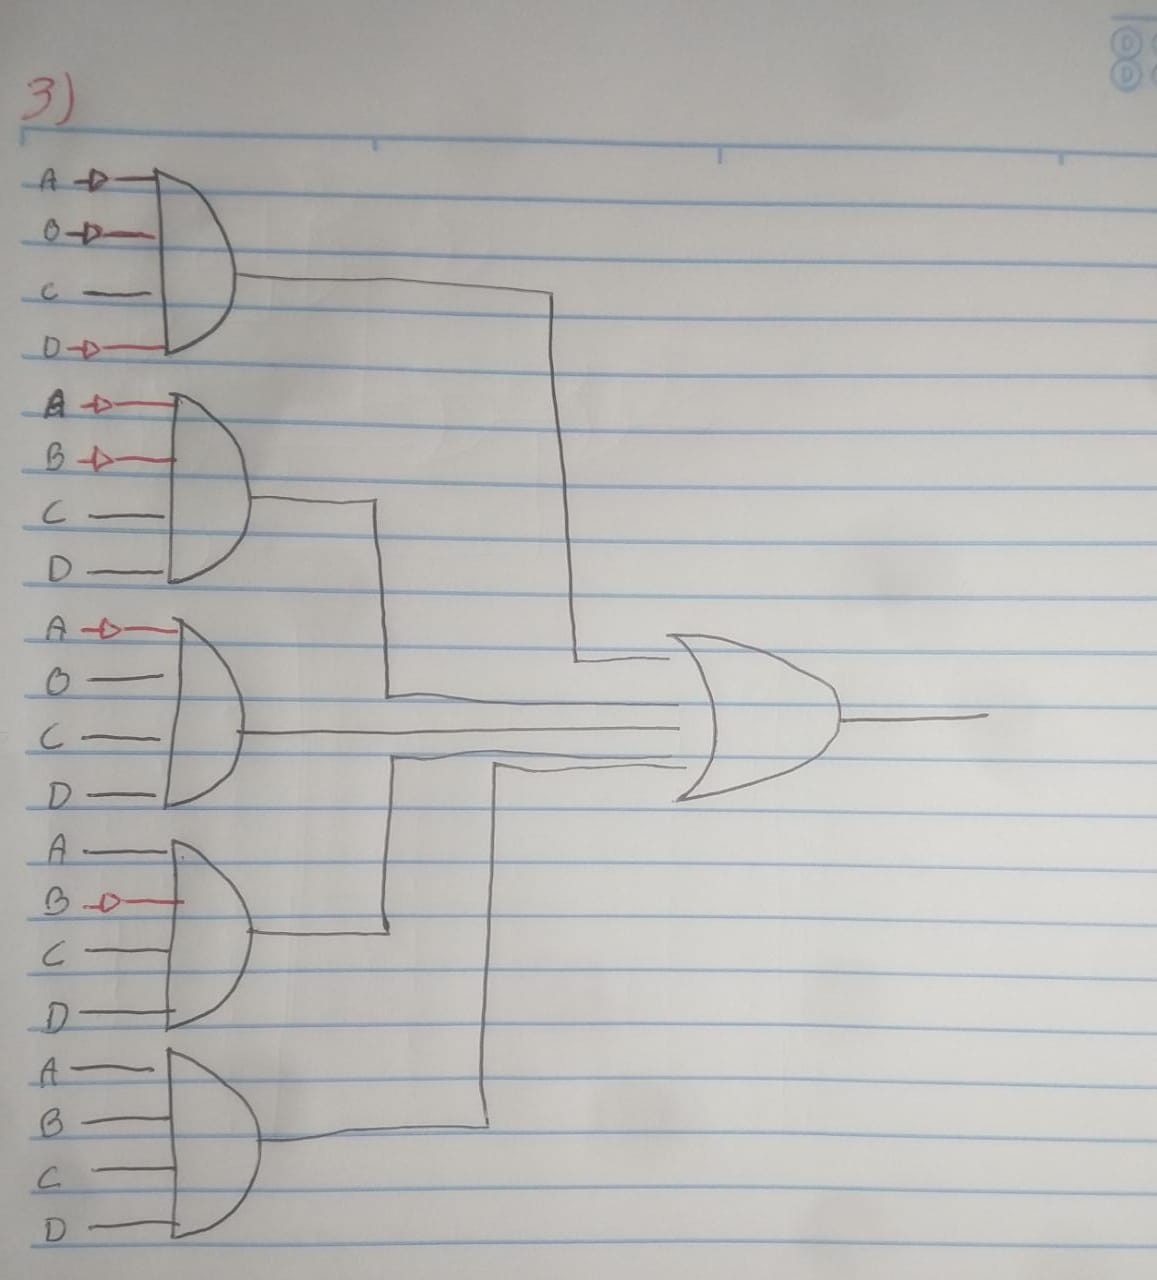 3)
A
B
C
D
A
B
C
D
A
B
C
D
A
B
C
D
A
B
C
D